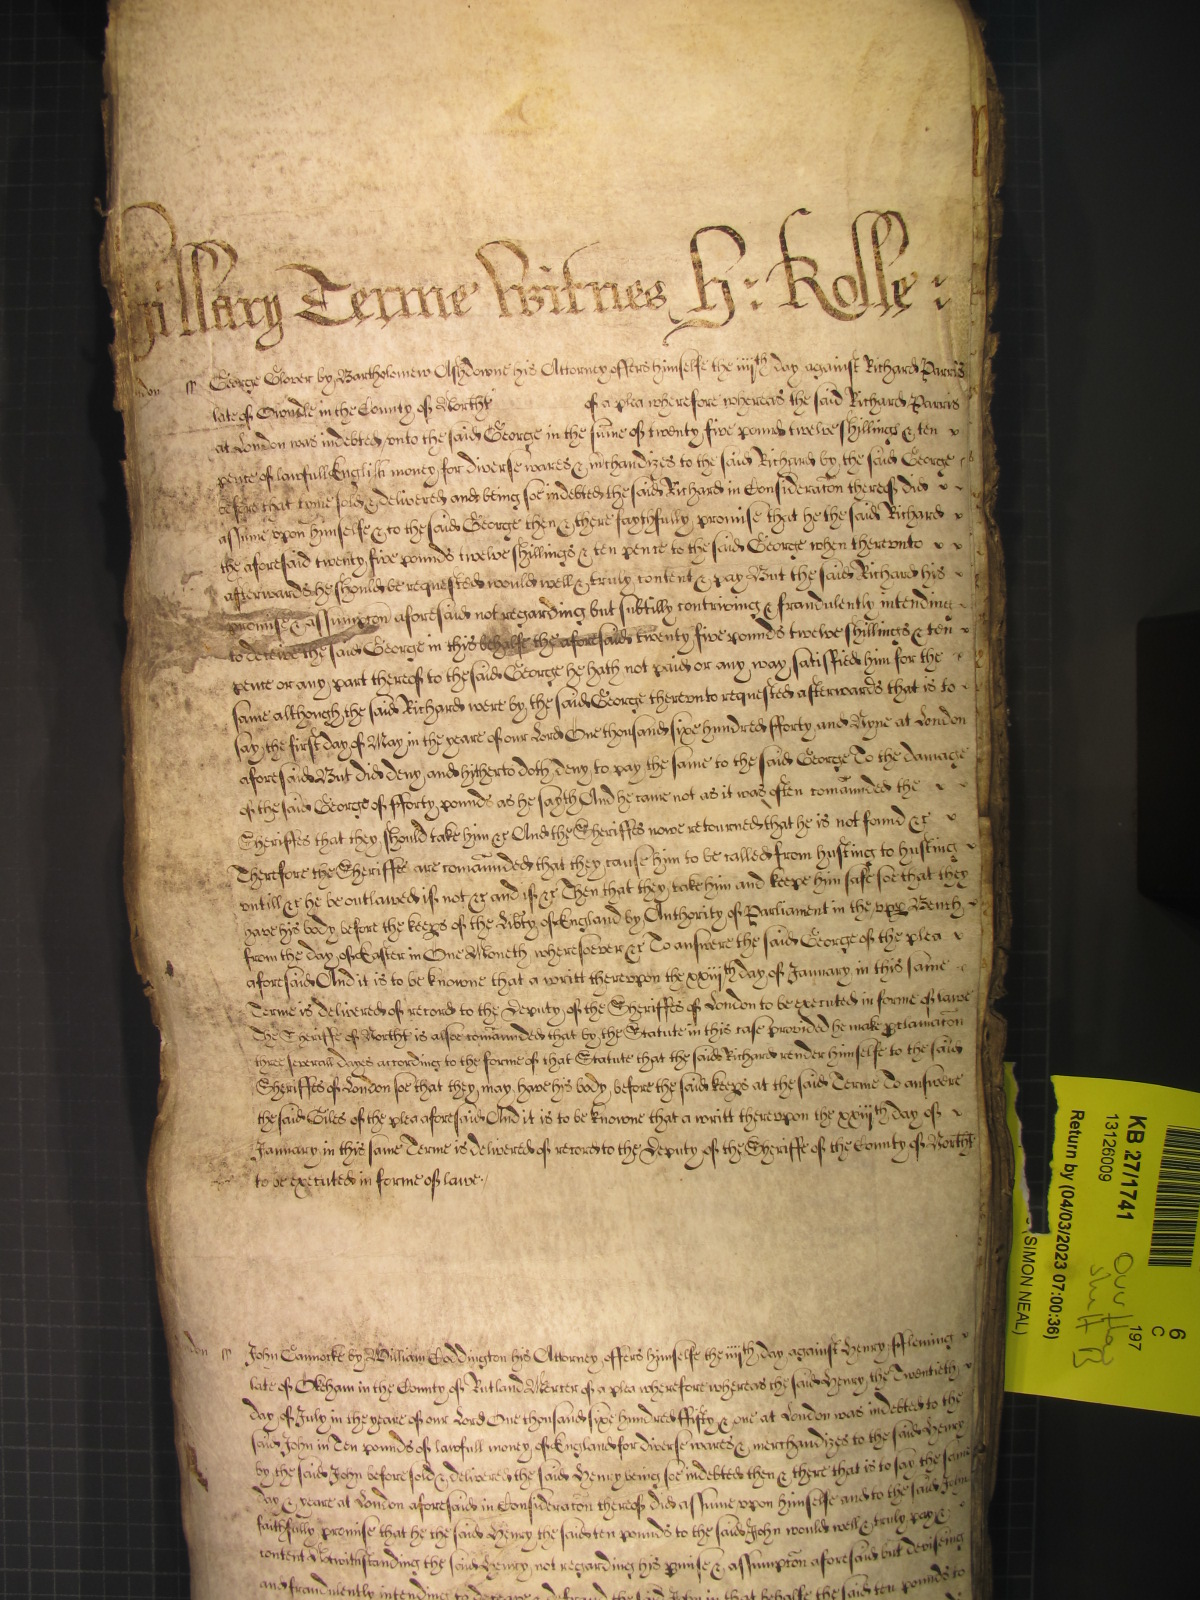 Hillary Terme Witnes H: Rolle:
ndon ss George Glover by Bartholomew Ashdowne his Attorney offers himselfe the iiijth day against Richard Parris
late of Owndle in the County of Northt of a plea wherefore whereas the said Richard Parris
at London was indebted unto the said George in the sume of twenty five pounds twelve shillings & ten
pence of lawfull English money for diverse wares & mrchandizes to the said Richard by the said George
before that tyme sold & delivered and being soe indebted the said Richard in Consideracon thereof did
assume upon himselfe & to the said George then & there faythfully promise that he the said Richard
the aforesaid twenty five pounds twelve shillings & ten pence to the said George when thereunto
afterwards he should be requested would well & truly content & pay But the said Richard his
promise & assumpcon aforesaid not regarding but subtilly contriving & fraudulently intending
to deceive the said George in this behalfe the aforesaid twenty five pounds twelve shillings & ten
pence or any part thereof to the said George he hath not paid or any way satisfied him for the
same although the said Richard were by the said George thereunto requested afterwards that is to
say the first day of May in the yeare of our Lord One thousand sixe hundred fforty and Nyne at London
aforesaid But did deny and hitherto doth deny to pay the same to the said George To the damage
of the said George of fforty pounds as he sayth And he came not as it was often comaunded the
Sheriffes that they should take him &c And the Sheriffes nowe retourned that he is not found &c
Therefore the Sheriffes are comaunded that they cause him to be called from husting to husting
untill &c he be outlawed if not &c and if &c Then that they take him and keepe him safe soe that they
have his body before the keeps of the Libty of England by Authority of Parliament in the upp Bench
from the day of Easter in One Moneth wheresoever &c To answere the said George of the plea
aforesaid And it is to be knowne that a writt thereupon the xxiijth day of January in this same
Terme is delivered of record to the Deputy of the Sheriffes of London to be executed in forme of lawe
The Sheriffe of Northt is alsoe comaunded that by the Statute in this case provided he make pclamacon
three severall dayes according to the forme of that Statute that the said Richard render himselfe to the said
Sheriffes of London soe that they may have his body before the said keeps at the said Terme To answere
the said Giles of the plea aforesaid And it is to be knowne that a writt thereupon the xxiijth day of
January in this same Terme is delivered of record to the Deputy of the Sheriffe of the County of Northt
to be executed in forme of lawe
ndon ss John Cannocke by William Eddington his Attorney offers himselfe the iiijth day against Henry Fleming
late of Okeham in the County of Rutland Mercer of a plea wherefore whereas the said Henry the Twentieth
day of July in the yeare of our Lord One thousand sixe hundred ffifty & one at London was indebted to the
said John in Ten pounds of lawfull money of England for diverse wares & merchandizes to the said Henry
by the said John before sold & delivered the said Henry being soe indebted then & there that is to say the same
day & yeare at London aforesaid in Consideracon thereof did assume upon himselfe and to the said John
faithfully promise that he the said Henry the said ten pounds to the said John would well & truly pay &
content Notwithstanding the said Henry not regarding his pmise & assumpcon aforesaid but deviseing
and fraudulently intending to deceave & defraud the said John in that behalfe the said ten pounds to
KB 27/1741
13126009
Return by (04/03/2023 07:00:36)
(SIMON NEAL)
6
C
197